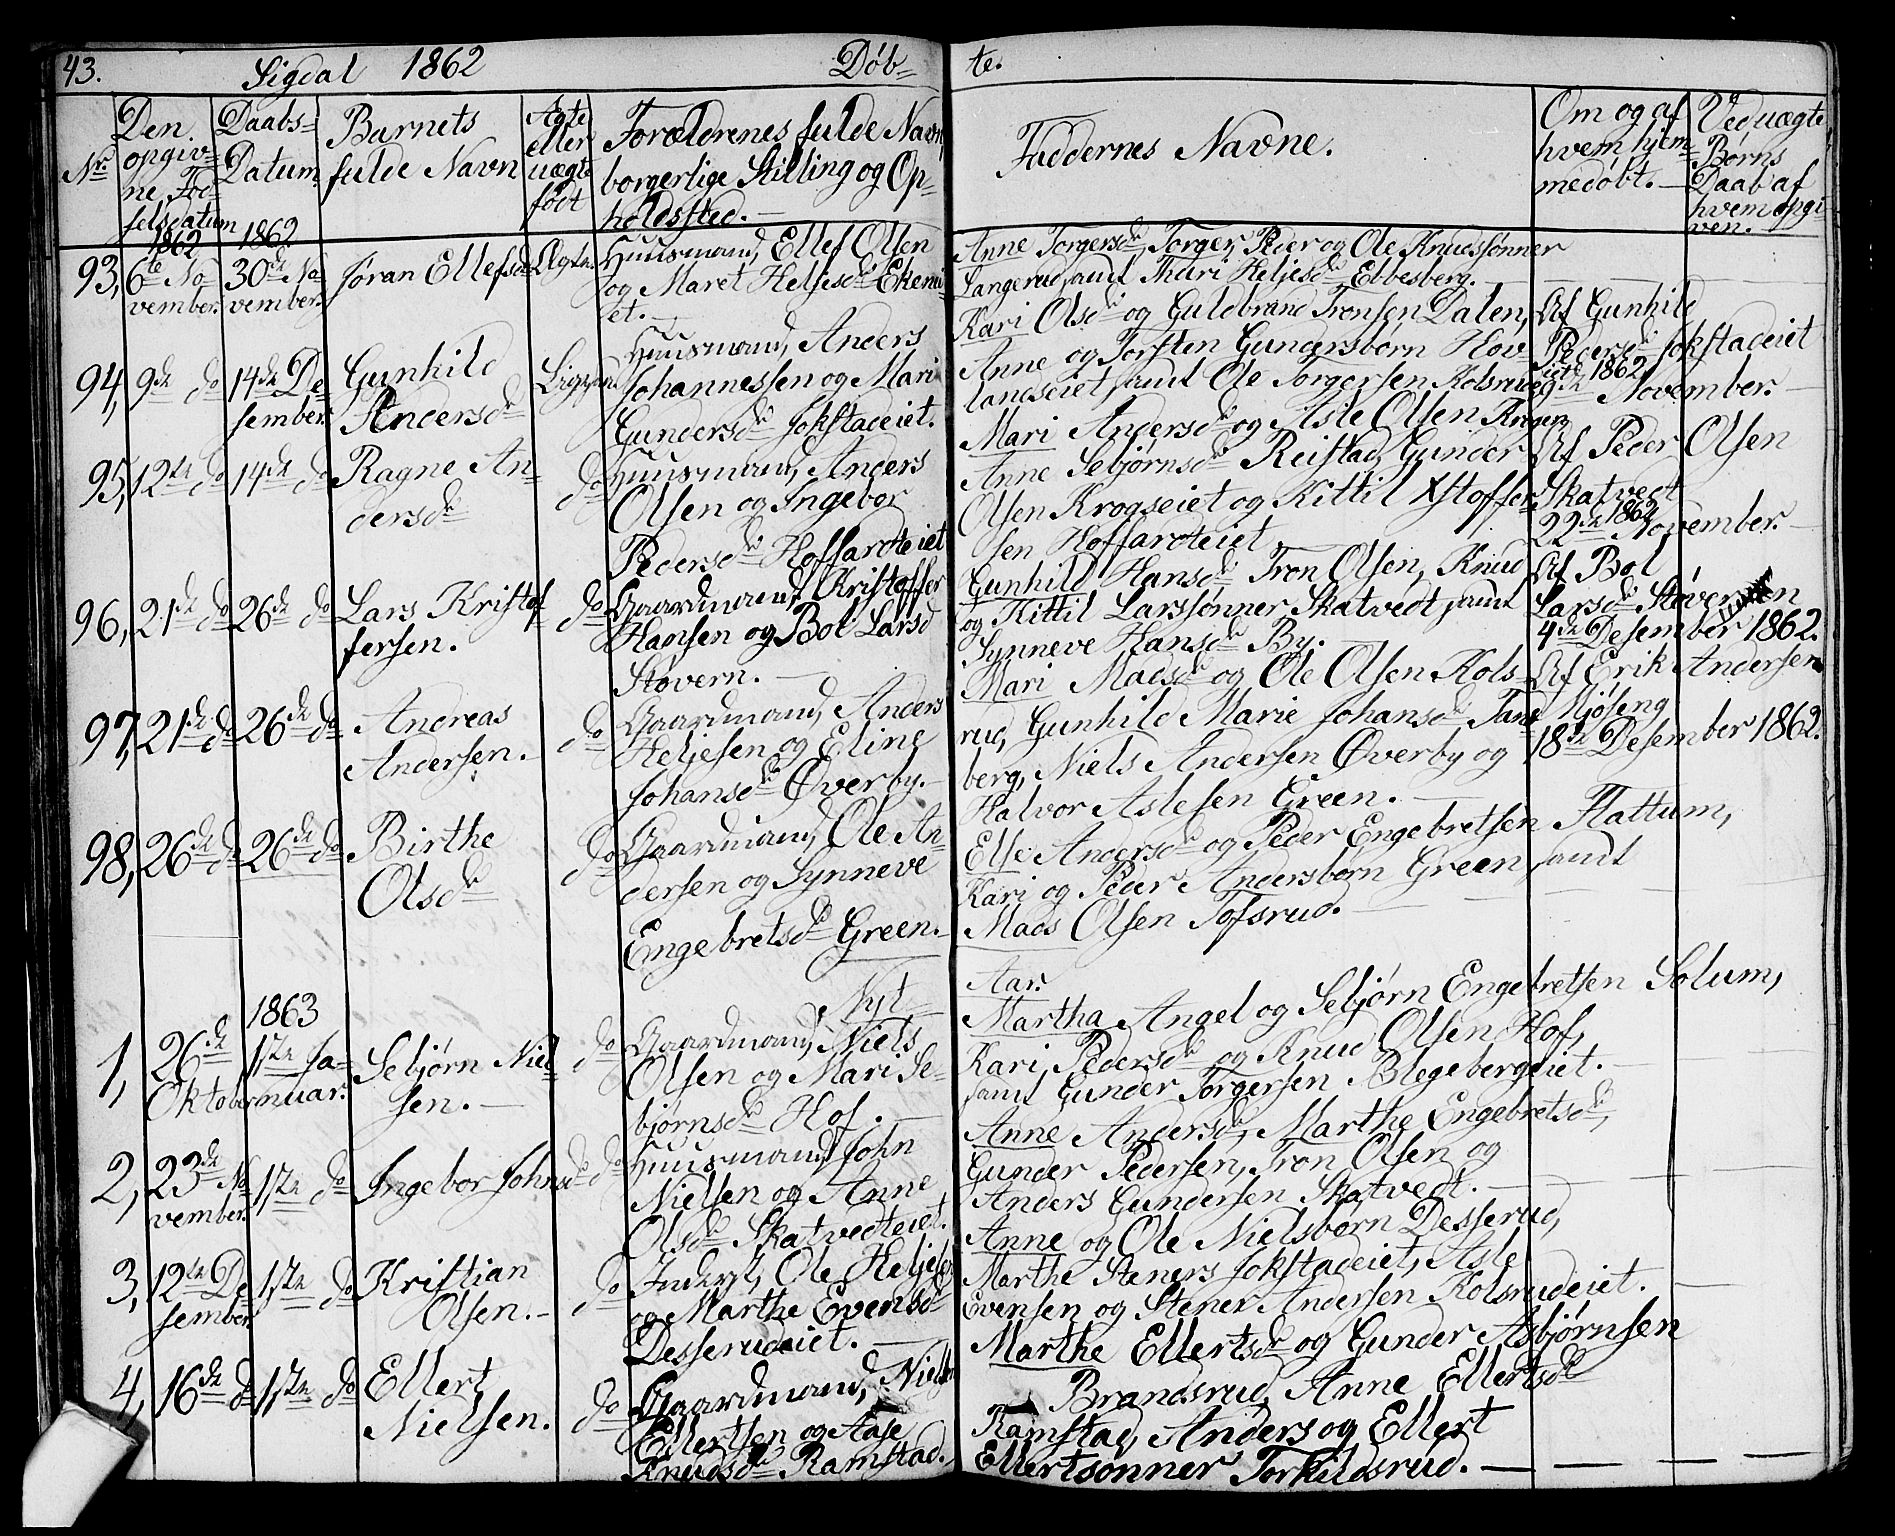 43. Sigdal 1862 Døb= te.
Nr.
Den opgiv=
ne Fød=
selsdatum
Daabs=
Datum.
Barnets
fulde Navn
Ægte
eller
uægte
født
Forældrenes fulde Navn,
borgerlige Stilling og Op=
holdssted. —
Faddernes Navne.
Om og af
hvem hjem=
medøbt. —
Ved uægte
Børns
Daab af
hvem opgi
ven. —
1862 1862
93, 6te No
vember.
30de No
vember.
Jøran Ellefsdr
Ægte.
Huusmand, Ellef Olsen
og Maret Heljesdr Ekerni
et. —
Anne Torgersdr Torger, Peder og Ole Knudssønner
Langerud, samt Thuri Heljesdr Ebbesberg. —
Kari Olsdr og Guldbrand Tronsen Dalen,
94, 9de do
14de De
sember.
Gunhild
Andersdr
Huusmand, Anders
Johannessen og Mari
Gundersdr Jokstadeiet.
Anne og Torsten Gundersbørn Hov
landseiet, samt Ole Torgersen Kolsrud
Mari Andersdr og Asle Olsen
Af Gunhild
Pedersdr Jokstadeiet
1862
November. —
95, 12te do
14de do
Ragne An=
dersdr
do
Huusmand, Anders
Olsen og Ingebor
Pedersdr Hoffardteiet
Anne Sebjørnsdr Reistad, Gunder
Olsen Krogseiet og Kittil Xstoffer
sen Hoffardteiet.
Af Peder Olsen
Skatvedt
22de 1862 November. —
96, 21de do
26de do
Lars Kristof
fersen.
do
Gaardmand, Kristoffer
Hansen og Bol Larsd
Støvern. —
Gunhild Hansdr Tron Olsen, Knud
og Kittil Larssønner Skatvedt samt
Synneve Hansdr By.
Af Bol
Larsdr Støvern
4de Desember 1862.
97, 21de do
26de do
Andreas
Andersen. —
do
Gaardmand, Anders
Heljesen og Eline
Johansdr Øverby. —
Mari Madsdr og Ole Olsen Kols=
rud, Gunhild Marie Johansdr Tand
berg, Niels Andersen Øverby og
Halvor Aslesen Green. —
Af Erik Andersen
Mjøseng
18de Desember 1862.
98, 26de do
26de do
Birthe
Olsdr
do
Gaardmand, Ole An=
dersen og Synneve
Engebretsdr Green. —
Else Andersdr og Peder Engebretsen Flattum,
Kari og Peder Andersbørn Green samt
Mads Olsen Tofsrud. —
Nyt Aar.
1863
1, 26de
Oktober
1ste Ja=
nuar.
Sebjørn Niel
sen. —
do
Gaardmand, Niels
Olsen og Mari Se=
bjørnsdr Hof. —
Martha Angel og Sebjørn Engebretsen Solum,
Kari Pedersdr og Knud Olsen Hof,
samt Gunder Torgersen Blegebergeiet. —
2, 23de No
vember.
1ste do
Ingebor Johnsdr
do
Huusmand, John
Nielsen og Anne
Olsdr Skatvedteiet.
Anne Andersdr, Marthe Engebretsdr,
Gunder Pedersen, Tron Olsen og
Anders Gundersen Skatvedt. —
3, 12te De
sember
1ste do
Kristian
Olsen. —
do
Inderst, Ole Heljesen
og Marthe Evensdr
Desserudeiet. —
Anne og Ole Nielsbørn Desserud,
Marthe Steners Jokstadeiet, Asle
Evensen og Stener Andersen Kolsrudeiet.
4, 16de do
1ste do
Ellert
Nielsen.
do
Gaardmand, Niels
Ellertsen og Aase
Knudsdr Ramstad.
Marthe Ellertsdr og Gunder Asbjørnsen
Brandsrud, Anne Ellertsdr
Ramstad, Anders og Ellert
Ellertsønner Torkildsrud. —